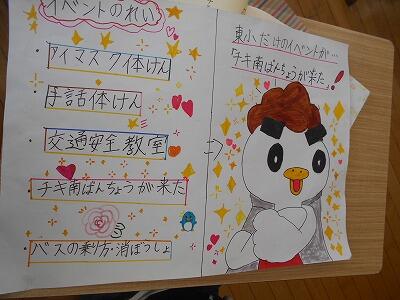 イベントのれい
・アイマスク体けん
・手話体けん
・交通安全教室
・チキ南ばんちょうが来た
・バスの乗り方・消ぼうしょ
東小だけのイベントが…
チキ南ばんちょうが来た!